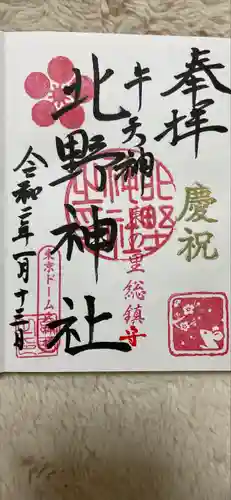 奉拝
慶祝
牛天神
北野神社
令和二年一月十三日
東京ドーム
総鎮守